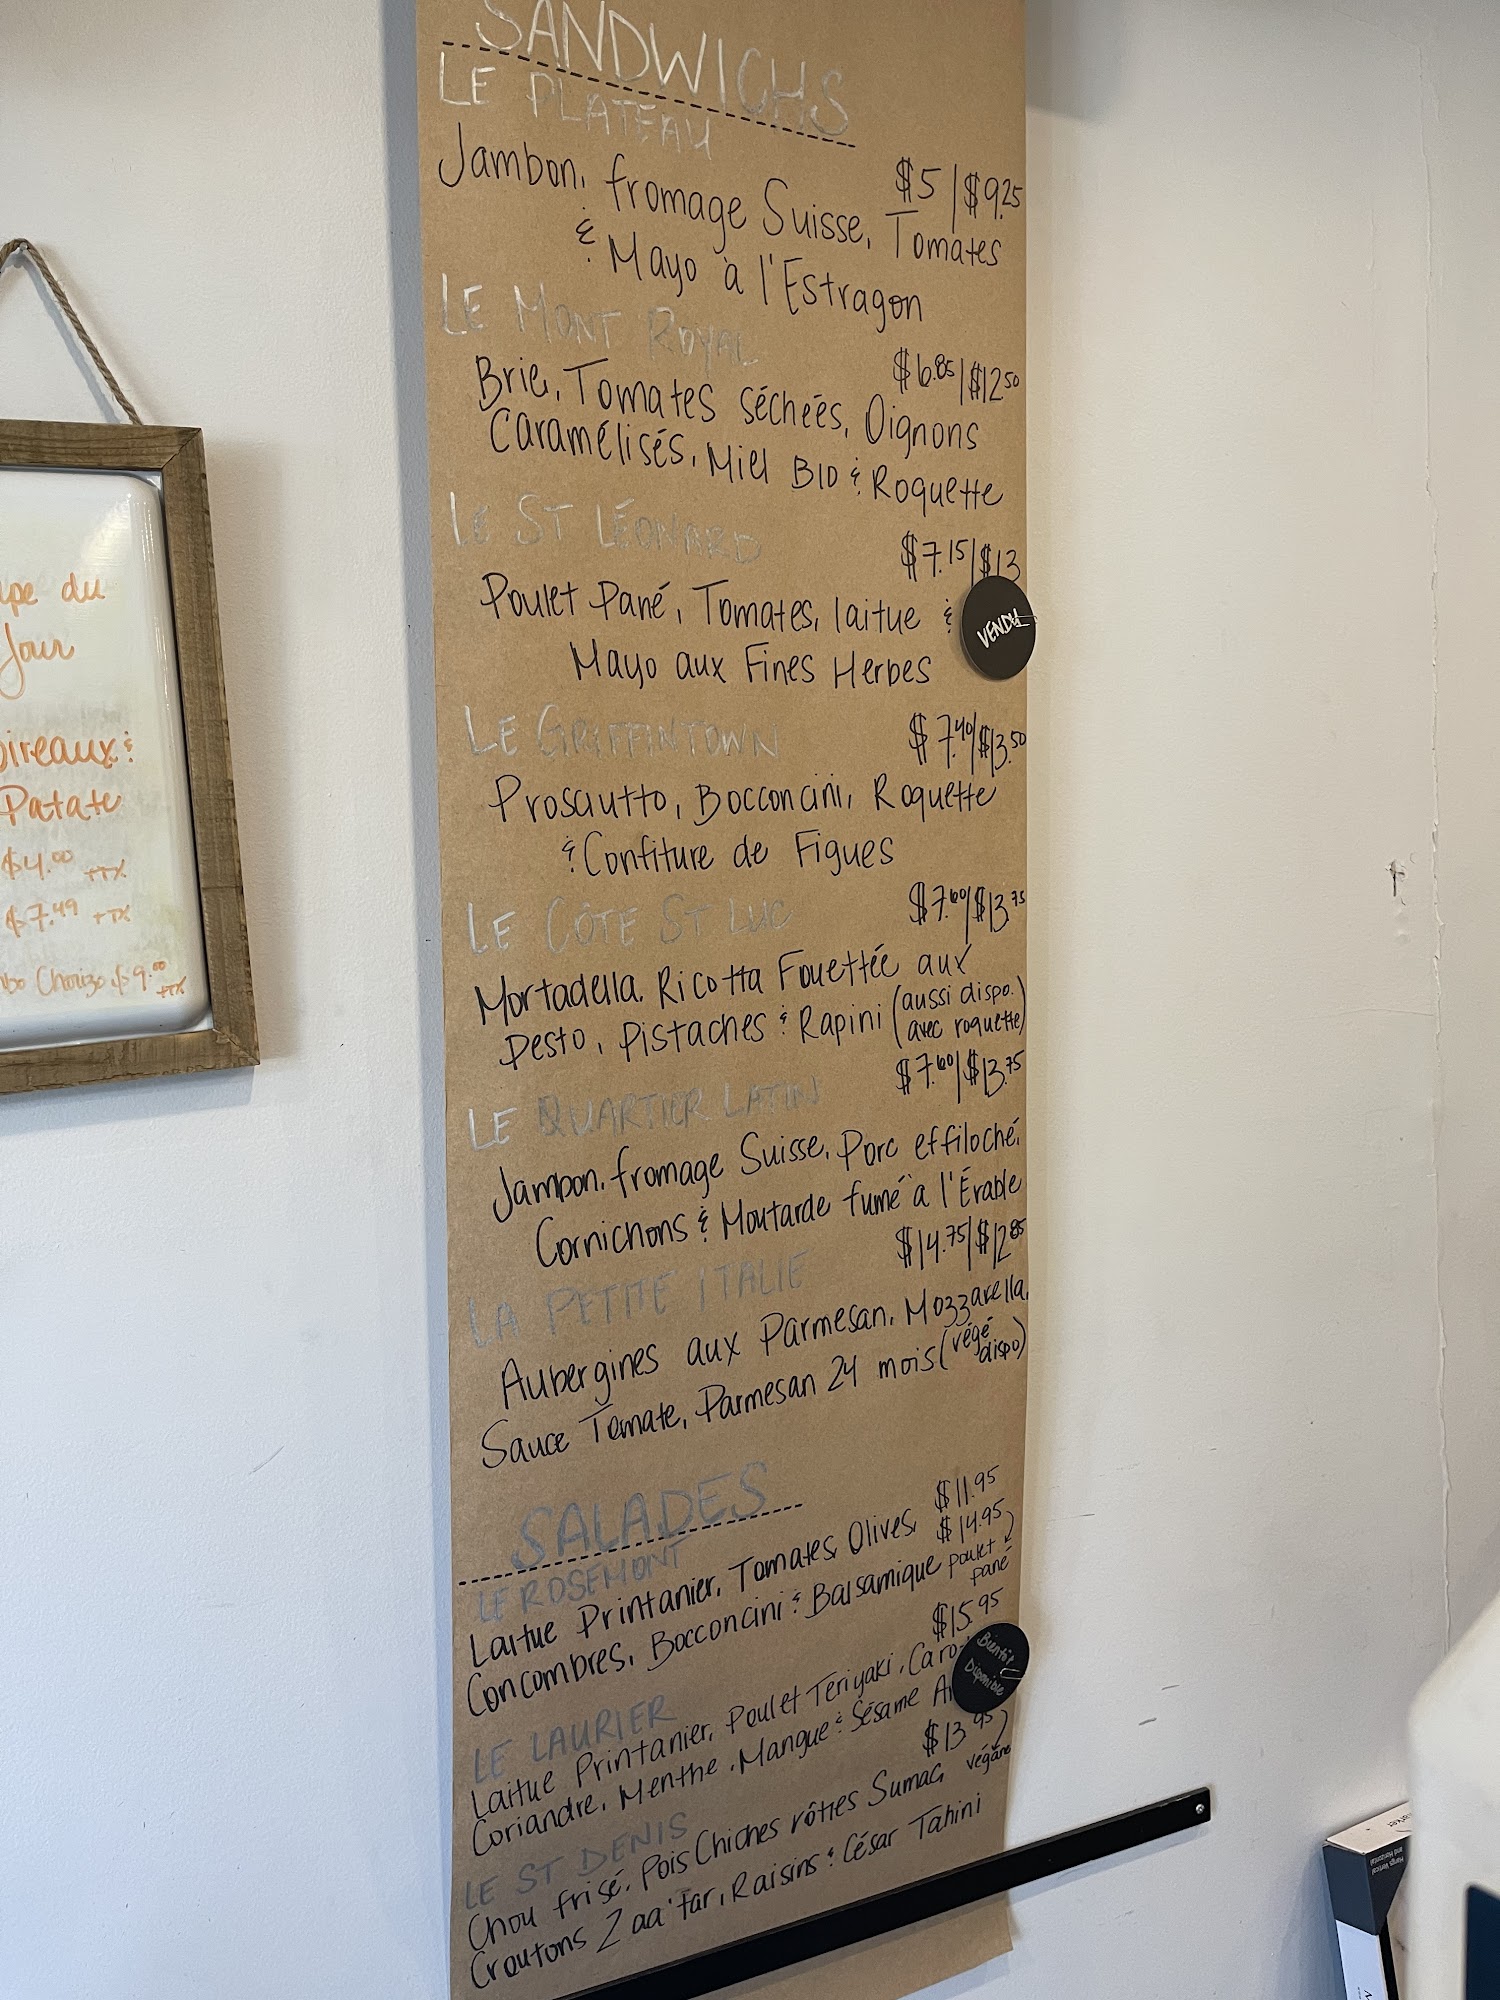 SANDWICHS
LE PLATEAU
$5 | $9.25
Jambon, fromage Suisse, Tomates
& Mayo à l'Estragon
LE MONT ROYAL
$6.85 | $12.50
Brie, Tomates séchéés, Oignons
Caramélisés, Miel BIO & Roquette
LE ST LÉONARD
$7.15 | $13
Poulet Pané, Tomates, laitue &
Mayo aux Fines Herbes
VENDU
LE GRIFFINTOWN
$7.40 | $13.50
Prosciutto, Bocconcini, Roquette
& Confiture de Figues
LE CÔTE ST LUC
$7.60 | $13.75
Mortadella, Ricotta Fouettée aux
Pesto, Pistaches & Rapini (aussi dispo.
avec roquette)
LE QUARTIER LATIN
$7.60 | $13.75
Jambon, fromage Suisse, Porc effiloché,
Cornichons & Moutarde fumé à l'Érable
LA PETITE ITALIE
$14.75 | $12.85
Aubergines aux Parmesan, Mozzarella,
Sauce Tomate, Parmesan 24 mois (végé
dispo)
SALADES
LE ROSEMONT
$11.95
$14.95
poulet
pané
Laitue Printanier, Tomates, Olives,
Concombres, Bocconcini & Balsamique
LE LAURIER
$15.95
Laitue Printanier, Poulet Teriyaki, Caro
Coriandre, Menthe, Mangue & Sésame
Bientôt
Disponible
LE ST DENIS
$13.95
végane
Chou frisé, Pois Chiches rôties Sumac,
Croutons Zaa'tar, Raisins & César Tahini
du
Jour
ireaux &
Patate
$4.00 +TX
$7.49 +TX
Chorizo $9.00
+TX
Hangs Vertical
and Horizontal